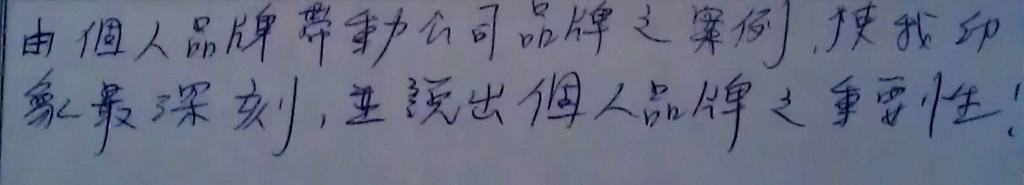 由個人品牌帶動公司品牌之案例,使我印
象最深刻,並說出個人品牌之重要性!